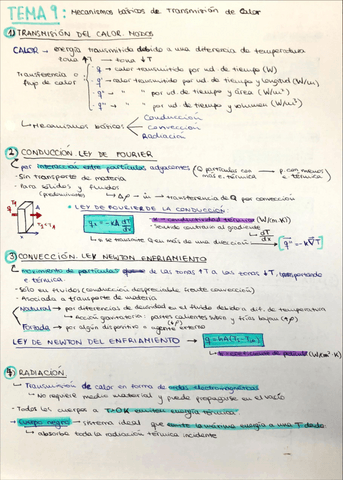 TEMA 9: Mecanismos básicos de Transmisión de Calor
1) TRANSMISIÓN DEL CALOR. MODOS
CALOR → energía transmitida debido a una diferencia de temperatura
zona ↑T → zona ↓T
Transferencia o flujo de calor
q → calor transmitido por ud. de tiempo (W)
q' → calor transmitido por ud. de tiempo y longitud (W/m)
q'' → " " por ud. de tiempo y área (W/m²)
q''' → " " por ud. de tiempo y volumen (W/m³)
↳ Mecanismos básicos
Conducción
Convección
Radiación
2) CONDUCCIÓN. LEY DE FOURIER
por interacción entre partículas adyacentes (Q partículas con más e. térmica → p. con menos e. térmica)
- Sin transporte de materia
- Para sólidos y fluidos
(predominante) ↳ Δρ → m → transferencia de Q por convección
LEY DE FOURIER DE LA CONDUCCIÓN
A
qx = -kA dT/dx
conductividad térmica (W/m·K)
- Sentido contrario al gradiente
dT/dx
↳ si se transmite Q en más de una dirección → q'' = -k∇T
3) CONVECCIÓN. LEY NEWTON ENFRIAMIENTO
movimiento de partículas desde de las zonas ↑T a las zonas ↓T, transportando e térmica.
- Sólo en fluidos (conducción despreciable frente convección)
- Asociada a transporte de materia
Natural → por diferencias de densidad en el fluido debido a dif. de temperatura
↳ Acción gravitatoria: partes calientes suben y frías bajan (↑ρ)
(↓ρ)
Forzada → por algún dispositivo o agente externo
LEY DE NEWTON DEL ENFRIAMIENTO →
(W/m²·K)
4) RADIACIÓN
Transmisión de calor en forma de ondas electromagnéticas
↳ No requiere medio material y puede propagarse en el vacío
- Todos los cuerpos a T>0K emiten energía térmica
- cuerpo negro → sistema ideal que emite la máxima energía a una T dada
↳ absorbe toda la radiación térmica incidente